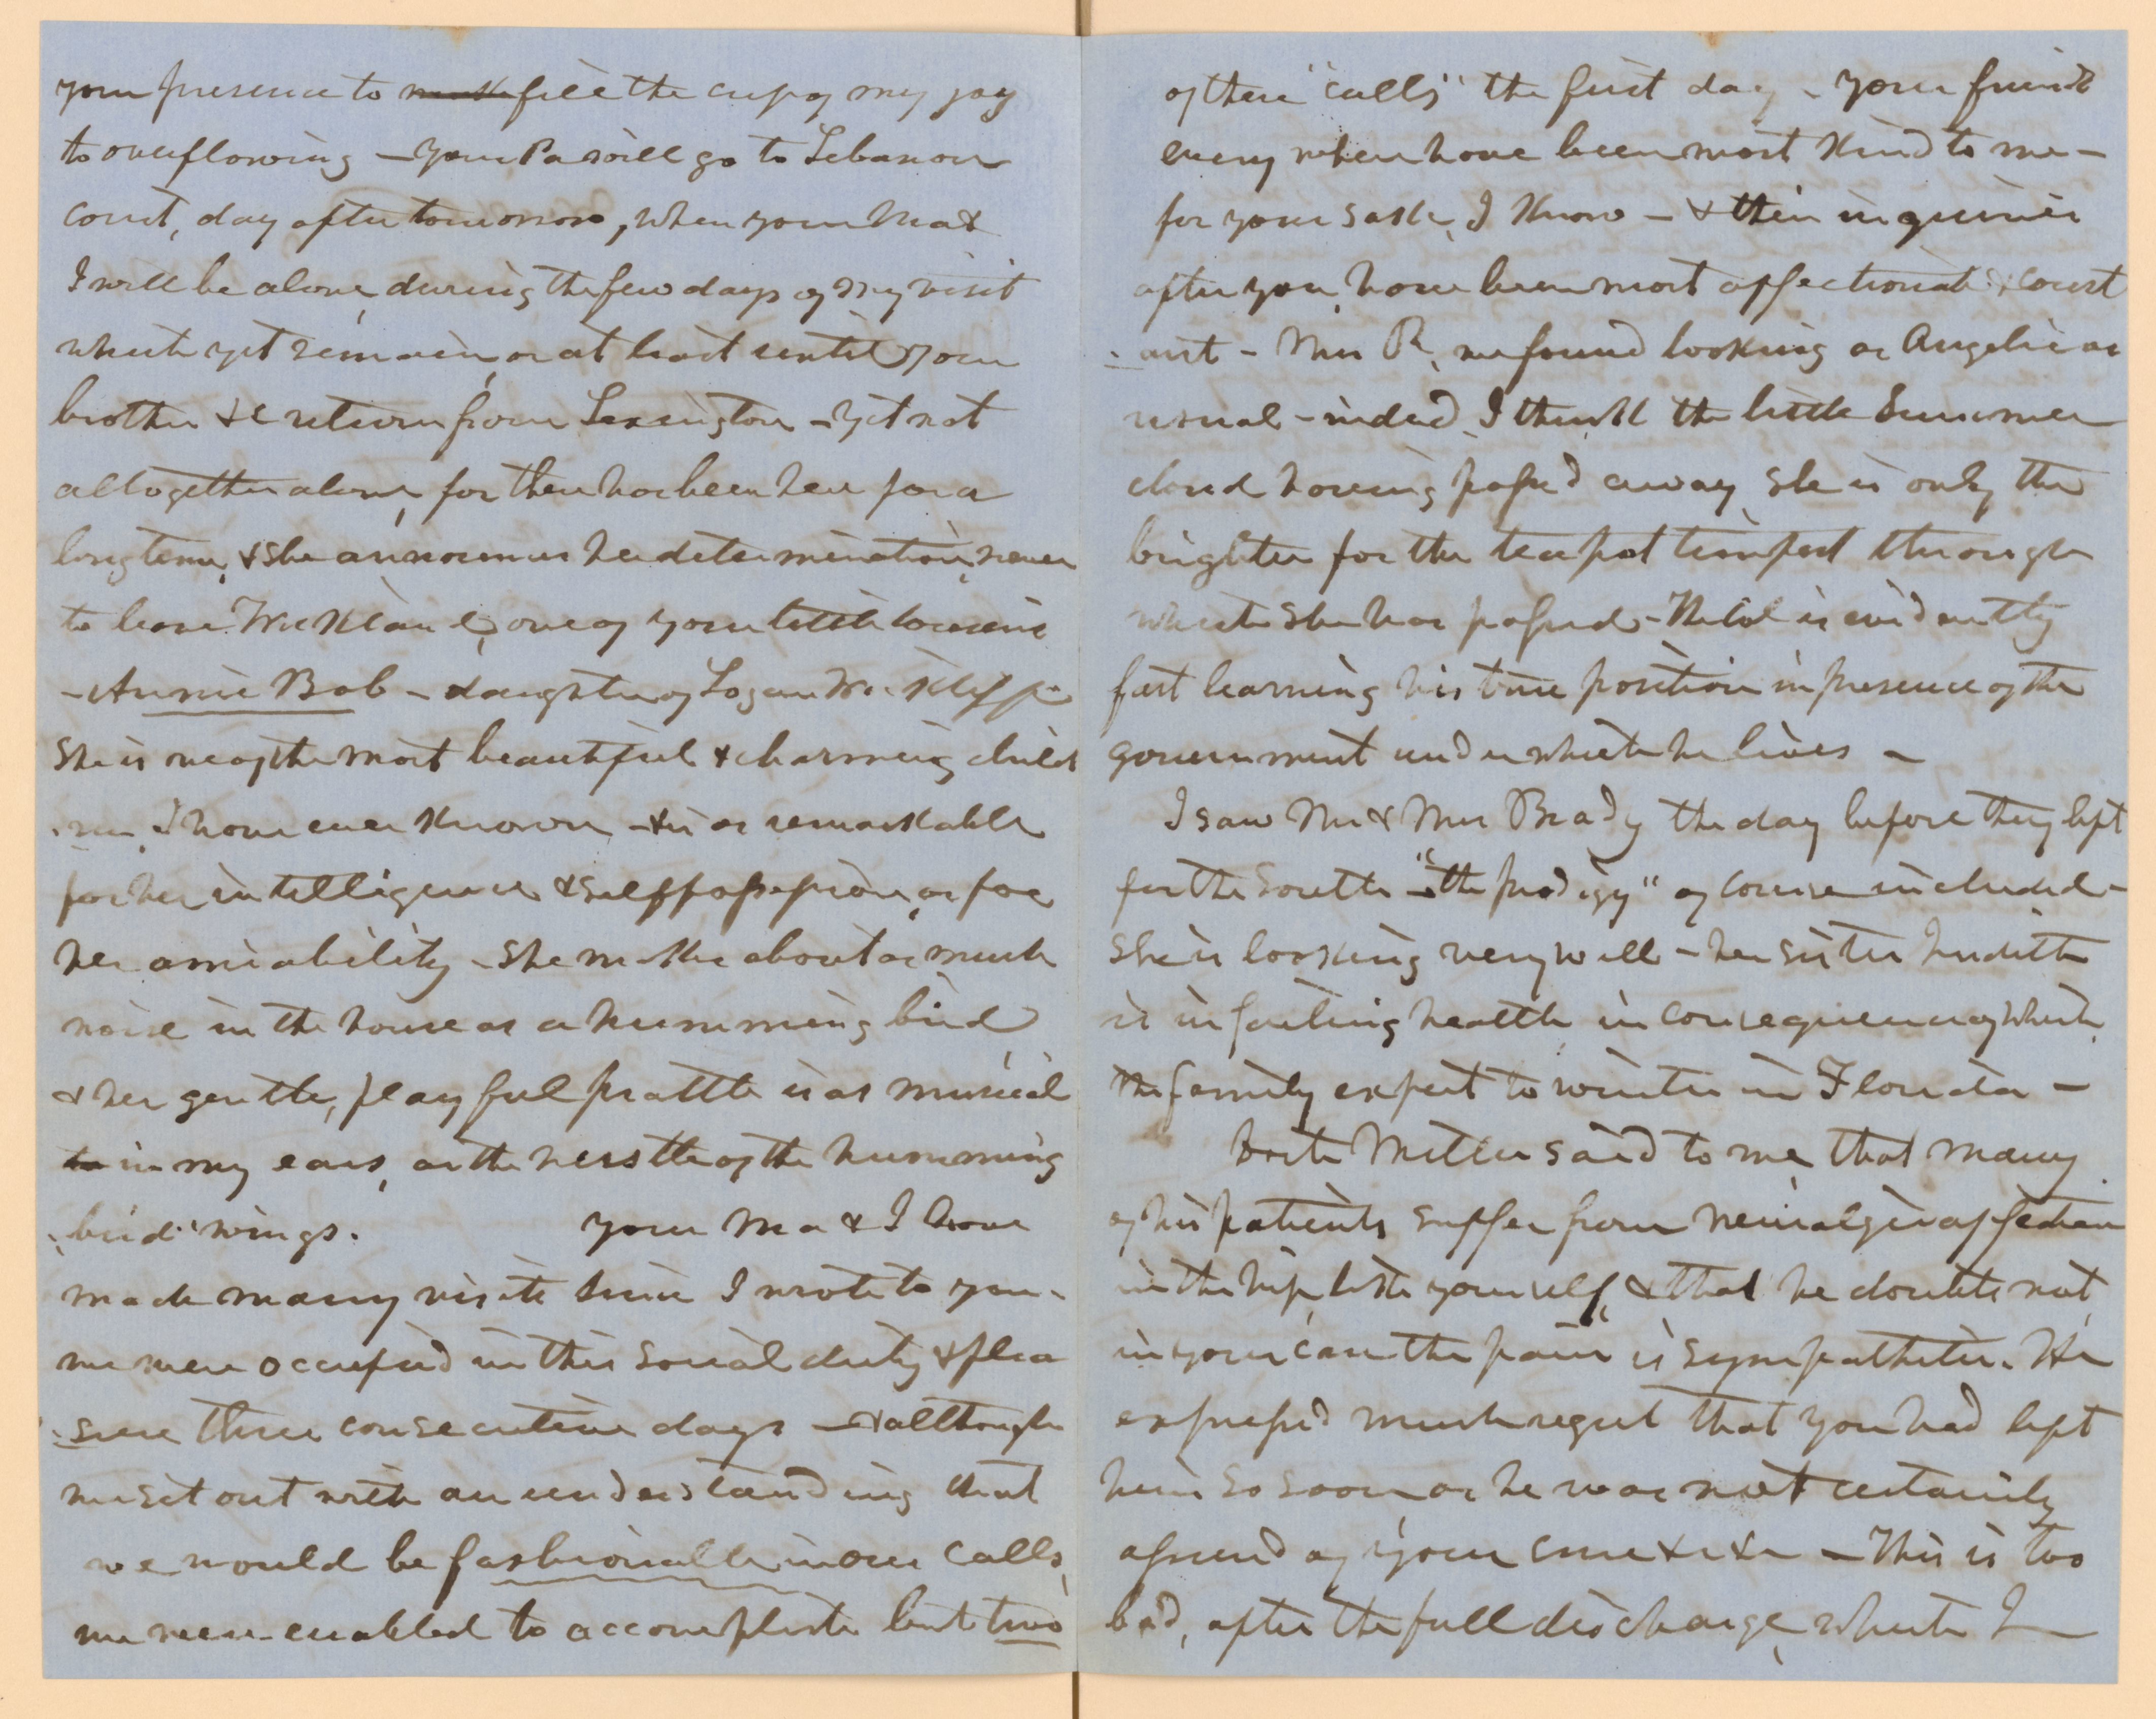 your presence to make fill the cup of my joy
to overflowing – your Pa will go to Lebanon
Court, day after tomorrow, when your Ma &
I will be alone, during the few days of my visit
which yet remain, or at least until your
brother & C return from Lexington – yet not
altogether alone, for there has been here for a
long time, & she announces her determination, never
to leave Wickland, one of your little cousins
– Annie Bob – daughter of Logan Wickliffe
She is one of the most beautiful & charming child
ren, I have ever known – & is as remarkable
for her intelligence & self possession, as for
her amiability – she makes about as much
noise in the house as a humming bird
& her gentle, playful prattle is as musical
to in my ears, as the rustle of the humming
bird' wings. your Ma & I have
made many visits since I wrote to you.
we were occupied in this social duty & plea
sure three consecutive days – & although
we set out with an understanding that
we would be fashionable in our calls,
we were enabled to accomplish but two
of these "calls" the first day – your friends
every where have been most kind to me –
for your sake, I know – & their inquiries
after you, have been most affectionate & const
ant – Mrs R, we found looking as Angelic as
usual – indeed, I think the little Summer
cloud having passed away she is only the
brighter for the teapot tempest through
which she has passed – is evidently
fast learning his true position in presence of the
government under which he lives –
I saw Mr & Mrs Brady the day before they left
for the South – "the prodigy" of course included –
She is looking very well – her sister Judith
is in failing health, in consequence of which,
the family expect to winter in Florida –
Doctr Miller said to me, that many
of his patients suffer from neuralgic affection
in the hip, like yourself, & that he doubts not,
in your case the pain is sympathetic. He
expressed much regret that you had left
him so soon, as he was not certainly
assured of your cure & & – This is too
bad, after the full discharge, which I